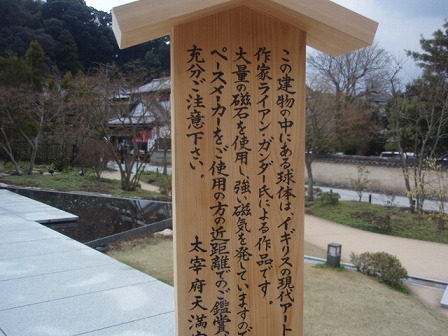 この建物の中にある球体は、イギリスの現代アート
作家ライアン・ガンダー氏による作品です。
大量の磁石を使用し、強い磁気を発していますので
ペースメーカーをご使用の方の近距離でのご鑑賞
充分ご注意下さい。
太宰府天満